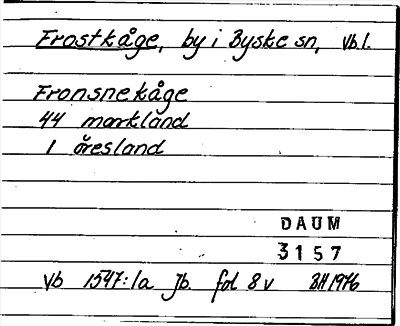 Frostkåge, by i Byske sn, Vb.l.
Fronsnekåge
44 markland
1 öresland
DAUM
3157
Vb 1547:1a Jb. fol 8 v BH 1976